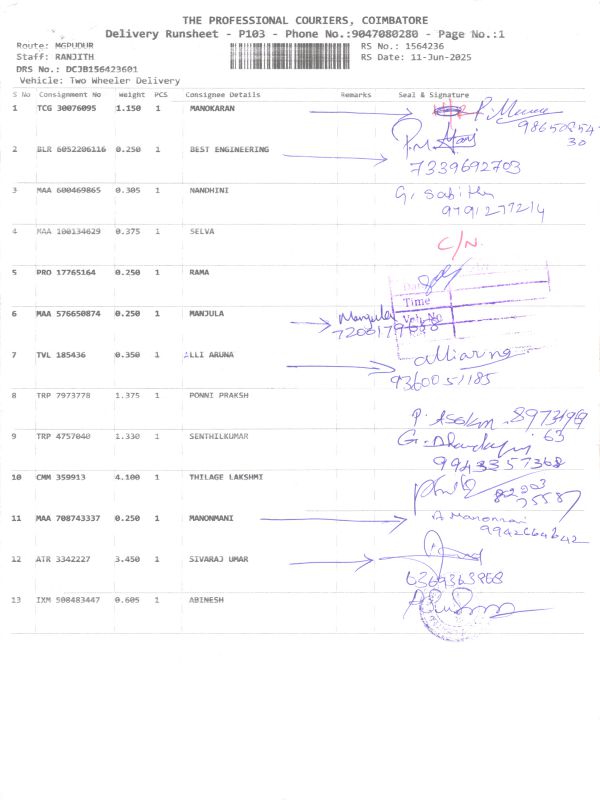 THE PROFESSIONAL COURIERS, COIMBATORE
Delivery Runsheet - P103 - Phone No.:9047080280 - Page No.:1
Route: MGPUDUR RS No.: 1564236
Staff: RANJITH RS Date: 11-Jun-2025
DRS No.: DCJB156423601
Vehicle: Two Wheeler Delivery
S No Consignment No Weight PCS Consignee Details Remarks Seal & Signature
1 TCG 30076095 1.150 1 MANOKARAN
2 BLR 6052206116 0.250 1 BEST ENGINEERING
7339692703
3 MAA 600469865 0.305 1 NANDHINI G. Sabitha
9791277214
4 MAA 100134629 0.375 1 SELVA C/N.
5 PRO 17765164 0.250 1 RAMA
Time
6 MAA 576650874 0.250 1 MANJULA Manjula Veh. No
7 TVL 185436 0.350 1 ALLI ARUNA alliaruna
9360051185
8 TRP 7973778 1.375 1 PONNI PRAKSH
P. Asokan
9 TRP 4757040 1.330 1 SENTHILKUMAR 63
9943357368
10 CMM 359913 4.100 1 THILAGE LAKSHMI
11 MAA 708743337 0.250 1 MANONMANI A Manonmani
9942664642
12 ATR 3342227 3.450 1 SIVARAJ UMAR
6369363868
13 IXM 508483447 0.605 1 ABINESH